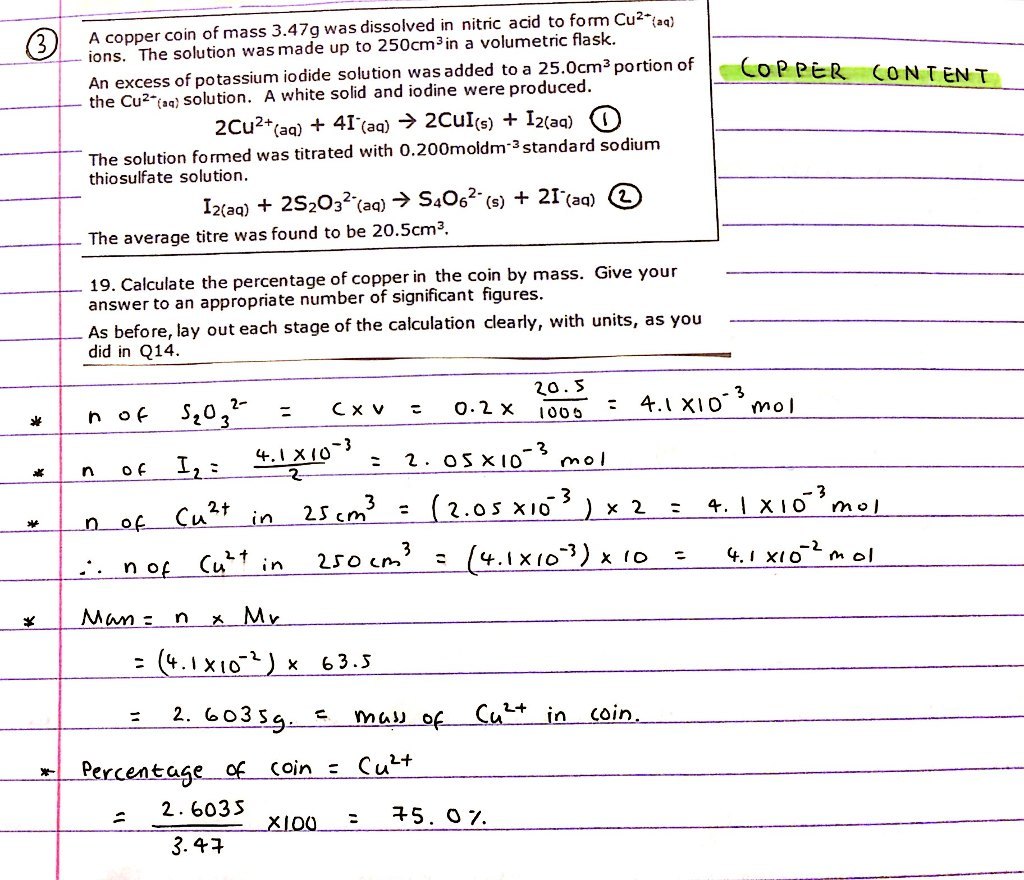 3
A copper coin of mass 3.47g was dissolved in nitric acid to form Cu²⁻(aq)
ions. The solution was made up to 250cm³ in a volumetric flask.
COPPER CONTENT
An excess of potassium iodide solution was added to a 25.0cm³ portion of
the Cu²⁻(aq) solution. A white solid and iodine were produced.
2Cu²⁺(aq) + 4I⁻(aq) → 2CuI(s) + I₂(aq) ①
The solution formed was titrated with 0.200moldm⁻³ standard sodium
thiosulfate solution.
I₂(aq) + 2S₂O₃²⁻(aq) → S₄O₆²⁻(s) + 2I⁻(aq) ②
The average titre was found to be 20.5cm³.
19. Calculate the percentage of copper in the coin by mass. Give your
answer to an appropriate number of significant figures.
As before, lay out each stage of the calculation clearly, with units, as you
did in Q14.
* n of S₂O₃²⁻ = C x V = 0.2 x 20.5/1000 = 4.1 x 10⁻³ mol
* n of I₂ = 4.1 x 10⁻³/2 = 2.05 x 10⁻³ mol
* n of Cu²⁺ in 25 cm³ = (2.05 x 10⁻³) x 2 = 4.1 x 10⁻³ mol
∴ n of Cu²⁺ in 250 cm³ = (4.1 x 10⁻³) x 10 = 4.1 x 10⁻² mol
* Mass = n x Mr
= (4.1 x 10⁻²) x 63.5
= 2.6035g. = mass of Cu²⁺ in coin.
* Percentage of coin = Cu²⁺
= 2.6035/3.47 x100 = 75.0%.